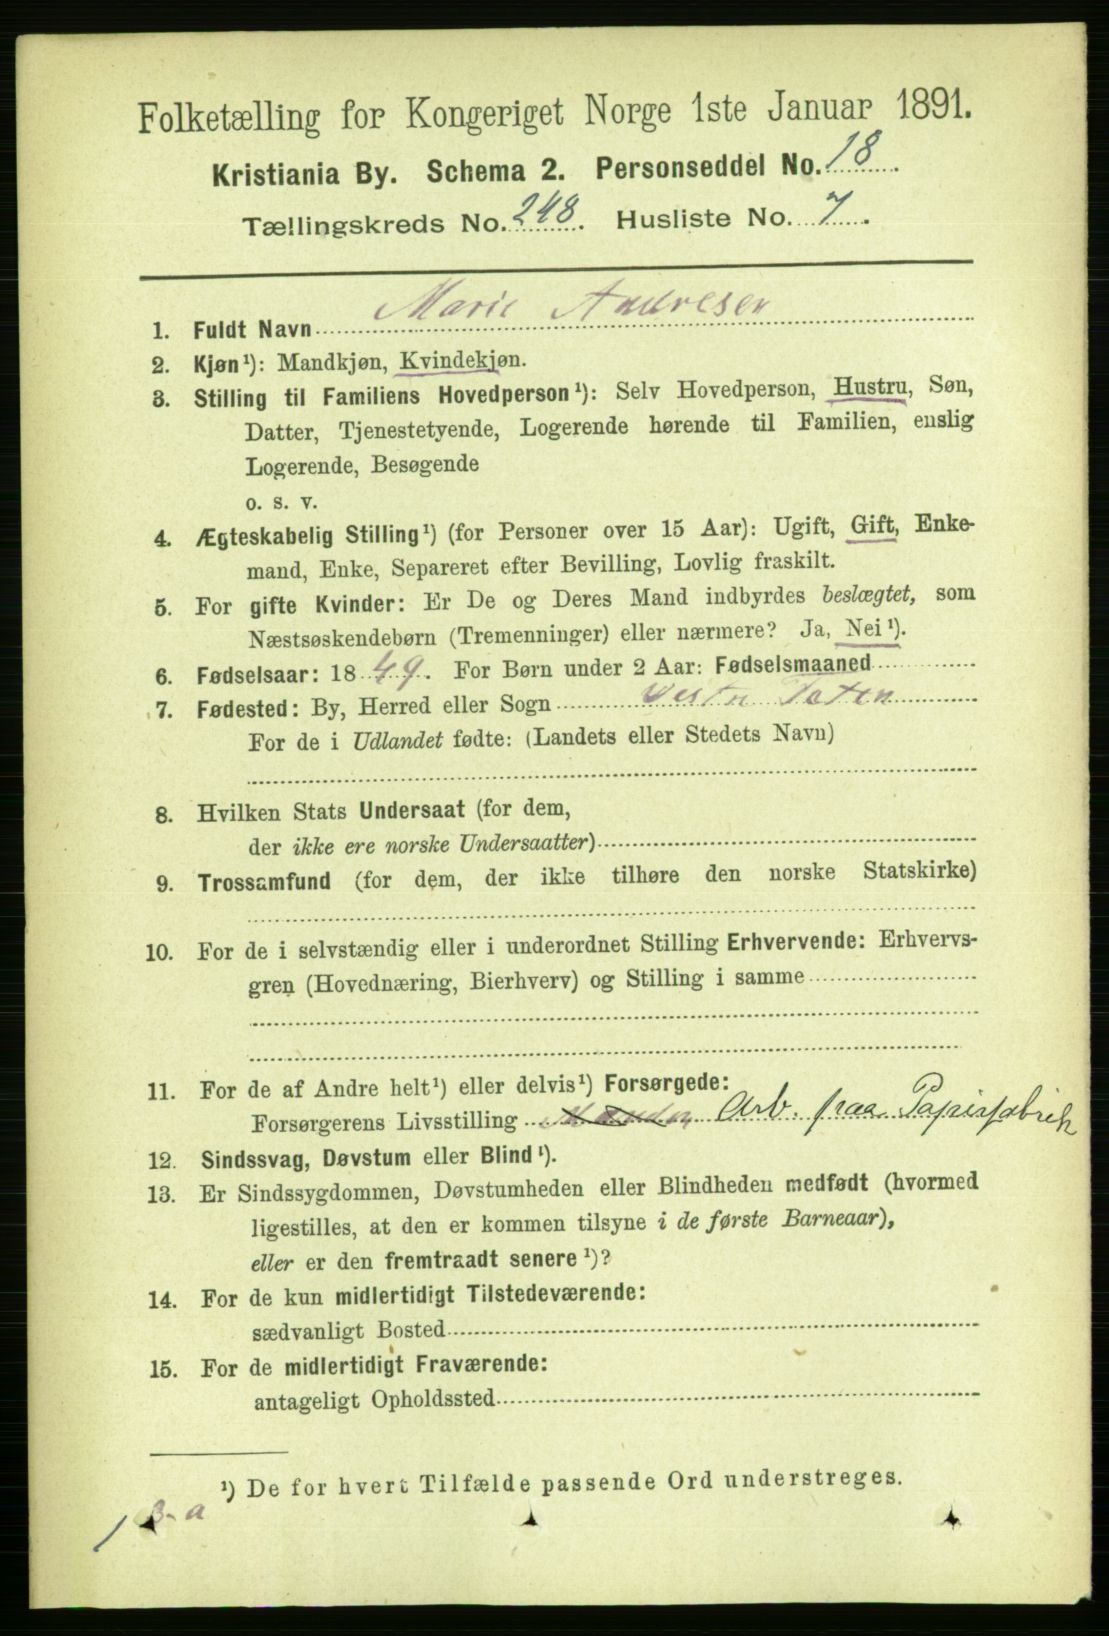 Folketælling for Kongeriget Norge 1ste Januar 1891.
Kristiania By. Schema 2. Personseddel No. 18.
Tællingskreds No. 248. Husliste No. 7.
1. Fuldt Navn Marie Andresen
2. Kjøn¹): Mandkjøn, Kvindekjøn.
3. Stilling til Familiens Hovedperson¹): Selv Hovedperson, Hustru, Søn,
Datter, Tjenestetyende, Logerende hørende til Familien, enslig
Logerende, Besøgende
o. s. v.
4. Ægteskabelig Stilling¹) (for Personer over 15 Aar): Ugift, Gift, Enke-
mand, Enke, Separeret efter Bevilling, Lovlig fraskilt.
5. For gifte Kvinder: Er De og Deres Mand indbyrdes beslægtet, som
Næstsøskendebørn (Tremenninger) eller nærmere? Ja, Nei¹).
6. Fødselsaar: 1849. For Børn under 2 Aar: Fødselsmaaned
7. Fødested: By, Herred eller Sogn Vestre Toten
For de i Udlandet fødte: (Landets eller Stedets Navn)
8. Hvilken Stats Undersaat (for dem,
der ikke ere norske Undersaatter)
9. Trossamfund (for dem, der ikke tilhøre den norske Statskirke)
10. For de i selvstændig eller i underordnet Stilling Erhvervende: Erhvervs-
gren (Hovednæring, Bierhverv) og Stilling i samme
11. For de af Andre helt¹) eller delvis¹) Forsørgede:
Forsørgerens Livsstilling Manden Arb. paa Papirfabrik
12. Sindssvag, Døvstum eller Blind¹).
13. Er Sindssygdommen, Døvstumheden eller Blindheden medfødt (hvormed
ligestilles, at den er kommen tilsyne i de første Barneaar),
eller er den fremtraadt senere¹)?
14. For de kun midlertidigt Tilstedeværende:
sædvanligt Bosted
15. For de midlertidigt Fraværende:
antageligt Opholdssted
¹) De for hvert Tilfælde passende Ord understreges.
1 3-a